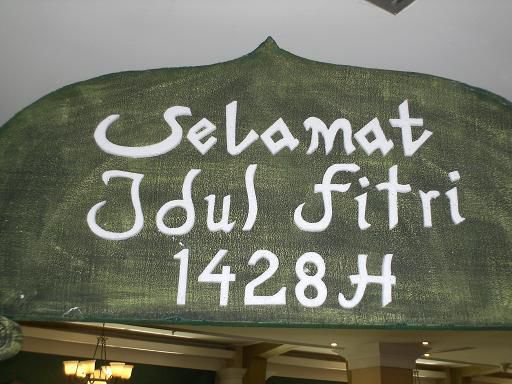 Selamat
Idul Fitri
1428 H